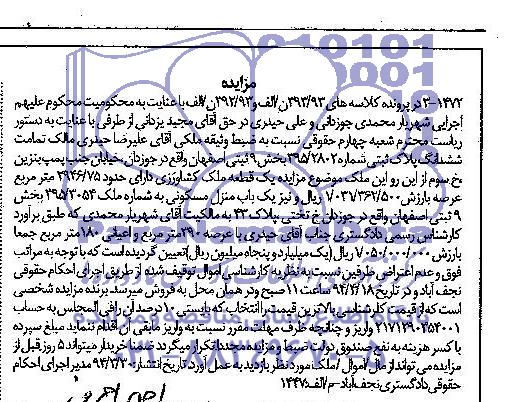 مزایده
۱۴۷۲-۳ در پرونده کلاسه های ۳۹۳/۹۳ن/الف و ۳۹۲/۹۳ن/الف با عنایت به محکومیت محکوم علیهم
اجرایی شهریار محمدی جوزدانی و علی حیدری در حق آقای مجید یزدانی از طرفی با عنایت به دستور
ریاست محترم شعبه چهارم حقوقی نسبت به ضبط وثیقه ملکی آقای علیرضا حیدری مالک تمامت
ششدانگ پلاک ثبتی شماره ۳۹۵/۲۸۰۲ بخش ۹ ثبتی اصفهان واقع در جوزدان خیابان جنب پمپ بنزین
خ سوم از این رو این ملک موضوع مزایده یک قطعه ملک کشاورزی دارای حدود ۳۹۴۶/۷۵ متر مربع
عرصه بارزش ۷/۰۳۱/۳۶۲/۵۰۰ ریال و نیز یک باب منزل مسکونی به شماره ملک ۳۹۵/۳۰۵۴ بخش
۹ ثبتی اصفهان واقع در جوزدان خ تختی پلاک ۴۳ به مالکیت آقای شهریار محمدی که طبق برآورد
کارشناس رسمی دادگستری جناب آقای حیدری با عرصه ۲۹۰ متر مربع و اعیانی ۱۸۰ متر مربع جمعا
بارزش ۷۰۵۰/۰۰۰/۰۰۰ ریال (یک میلیارد و پنجاه میلیون ریال) تعیین گردیده است که با توجه به مراتب
فوق و عدم اعتراض طرفین نسبت به نظریه کارشناسی اموال توقیف شده از طریق اجرای احکام حقوقی
نجف آباد و در تاریخ ۹۴/۴/۱۸ ساعت ۱۱ صبح و در همان محل به فروش میرسد برنده مزایده شخصی
است که از قیمت کارشناسی بالاترین قیمت را انتخاب که بایستی ۱۰ درصد آن را فی المجلس به حساب
۲۱۷۱۲۹۰۳۵۴۰۰۱ واریز و چنانچه ظرف مهلت مقرر نسبت به واریز مابقی آن اقدام ننماید مبلغ سپرده
با کسر هزینه به نفع صندوق دولت ضبط و مزایده مجددا تکرار میگردد ضمنا خریدار میتواند ۵ روز قبل از
مزایده می تواند از مال/اموال/ملک مورد نظر بازدید به عمل آورد تاریخ انتشار: ۹۴/۳/۲۰ مدیر اجرای احکام
حقوقی دادگستری نجف آباد- م/الف: ۱۴۴۷